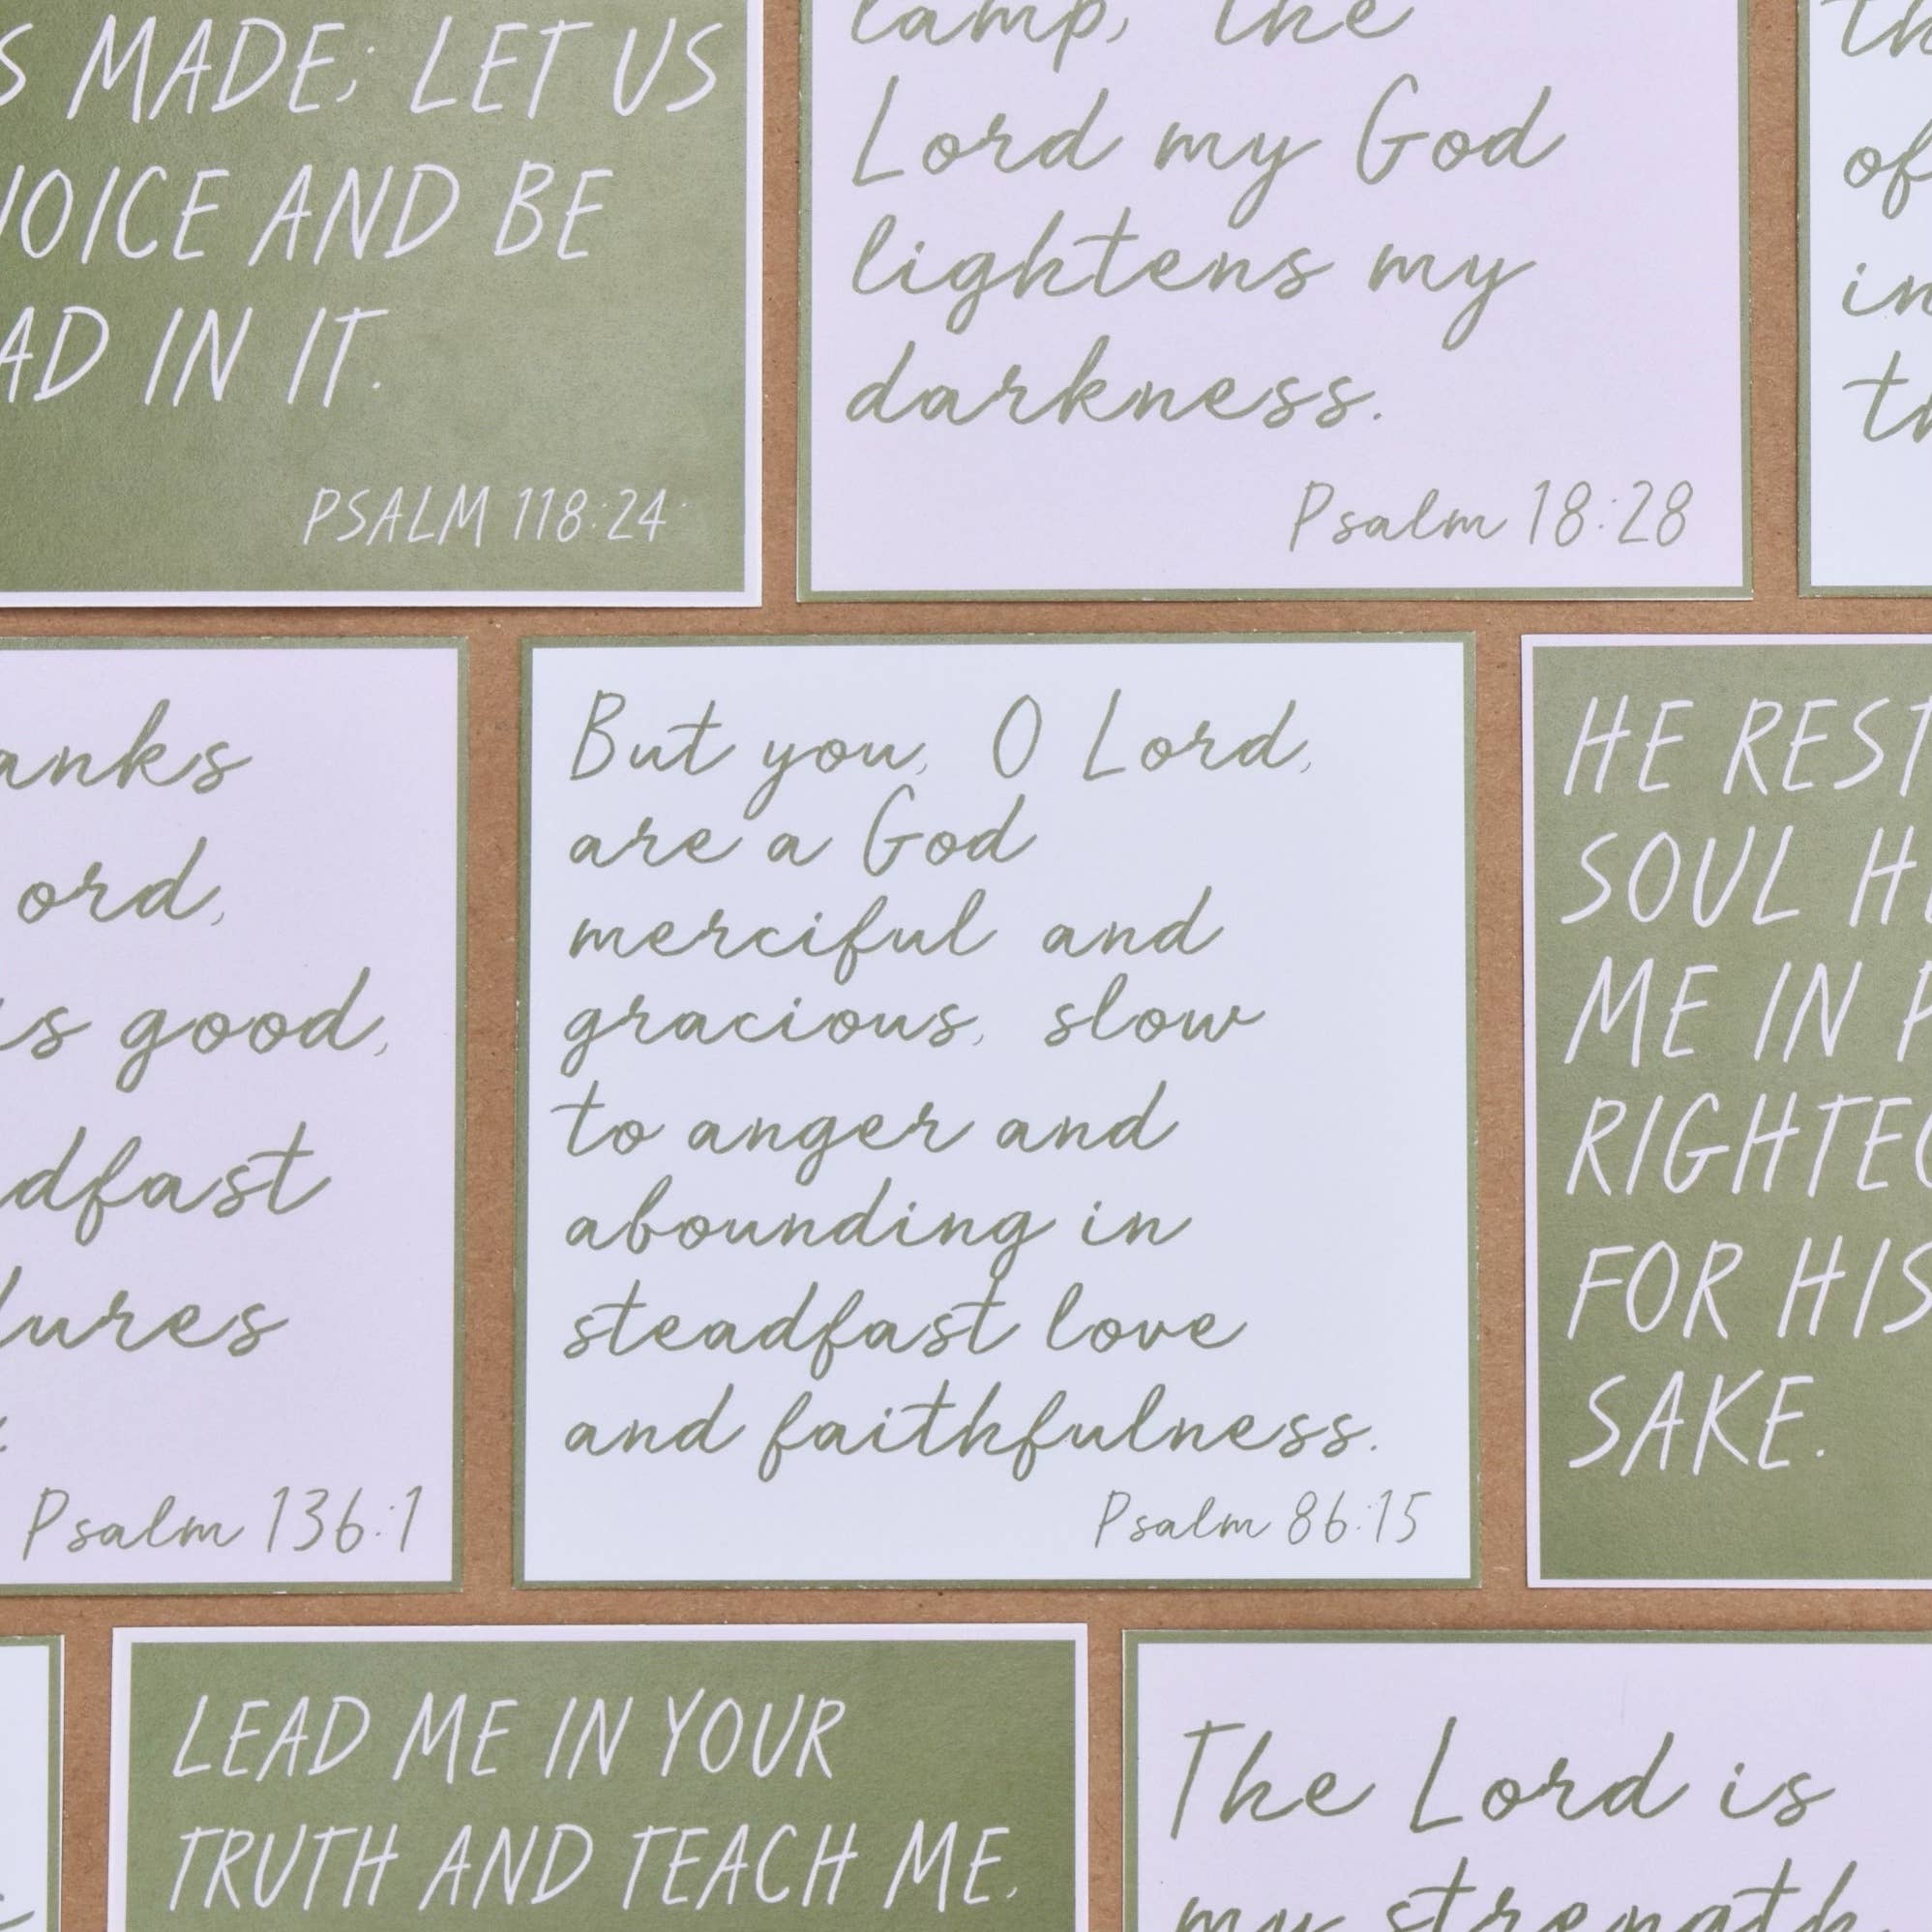 MADE; LET US
AND BE
IN IT.
PSALM 118:24
lamp, the
Lord my God
lightens my
darkness.
Psalm 18:28
of
in
is good,
Psalm 136:1
But you, O Lord,
are a God
merciful and
gracious, slow
to anger and
abounding in
steadfast love
and faithfulness.
Psalm 86:15
HE
SOUL
ME IN
FOR HIS
SAKE.
LEAD ME IN YOUR
TRUTH AND TEACH ME,
The Lord is
my strength